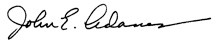 John E. Adams